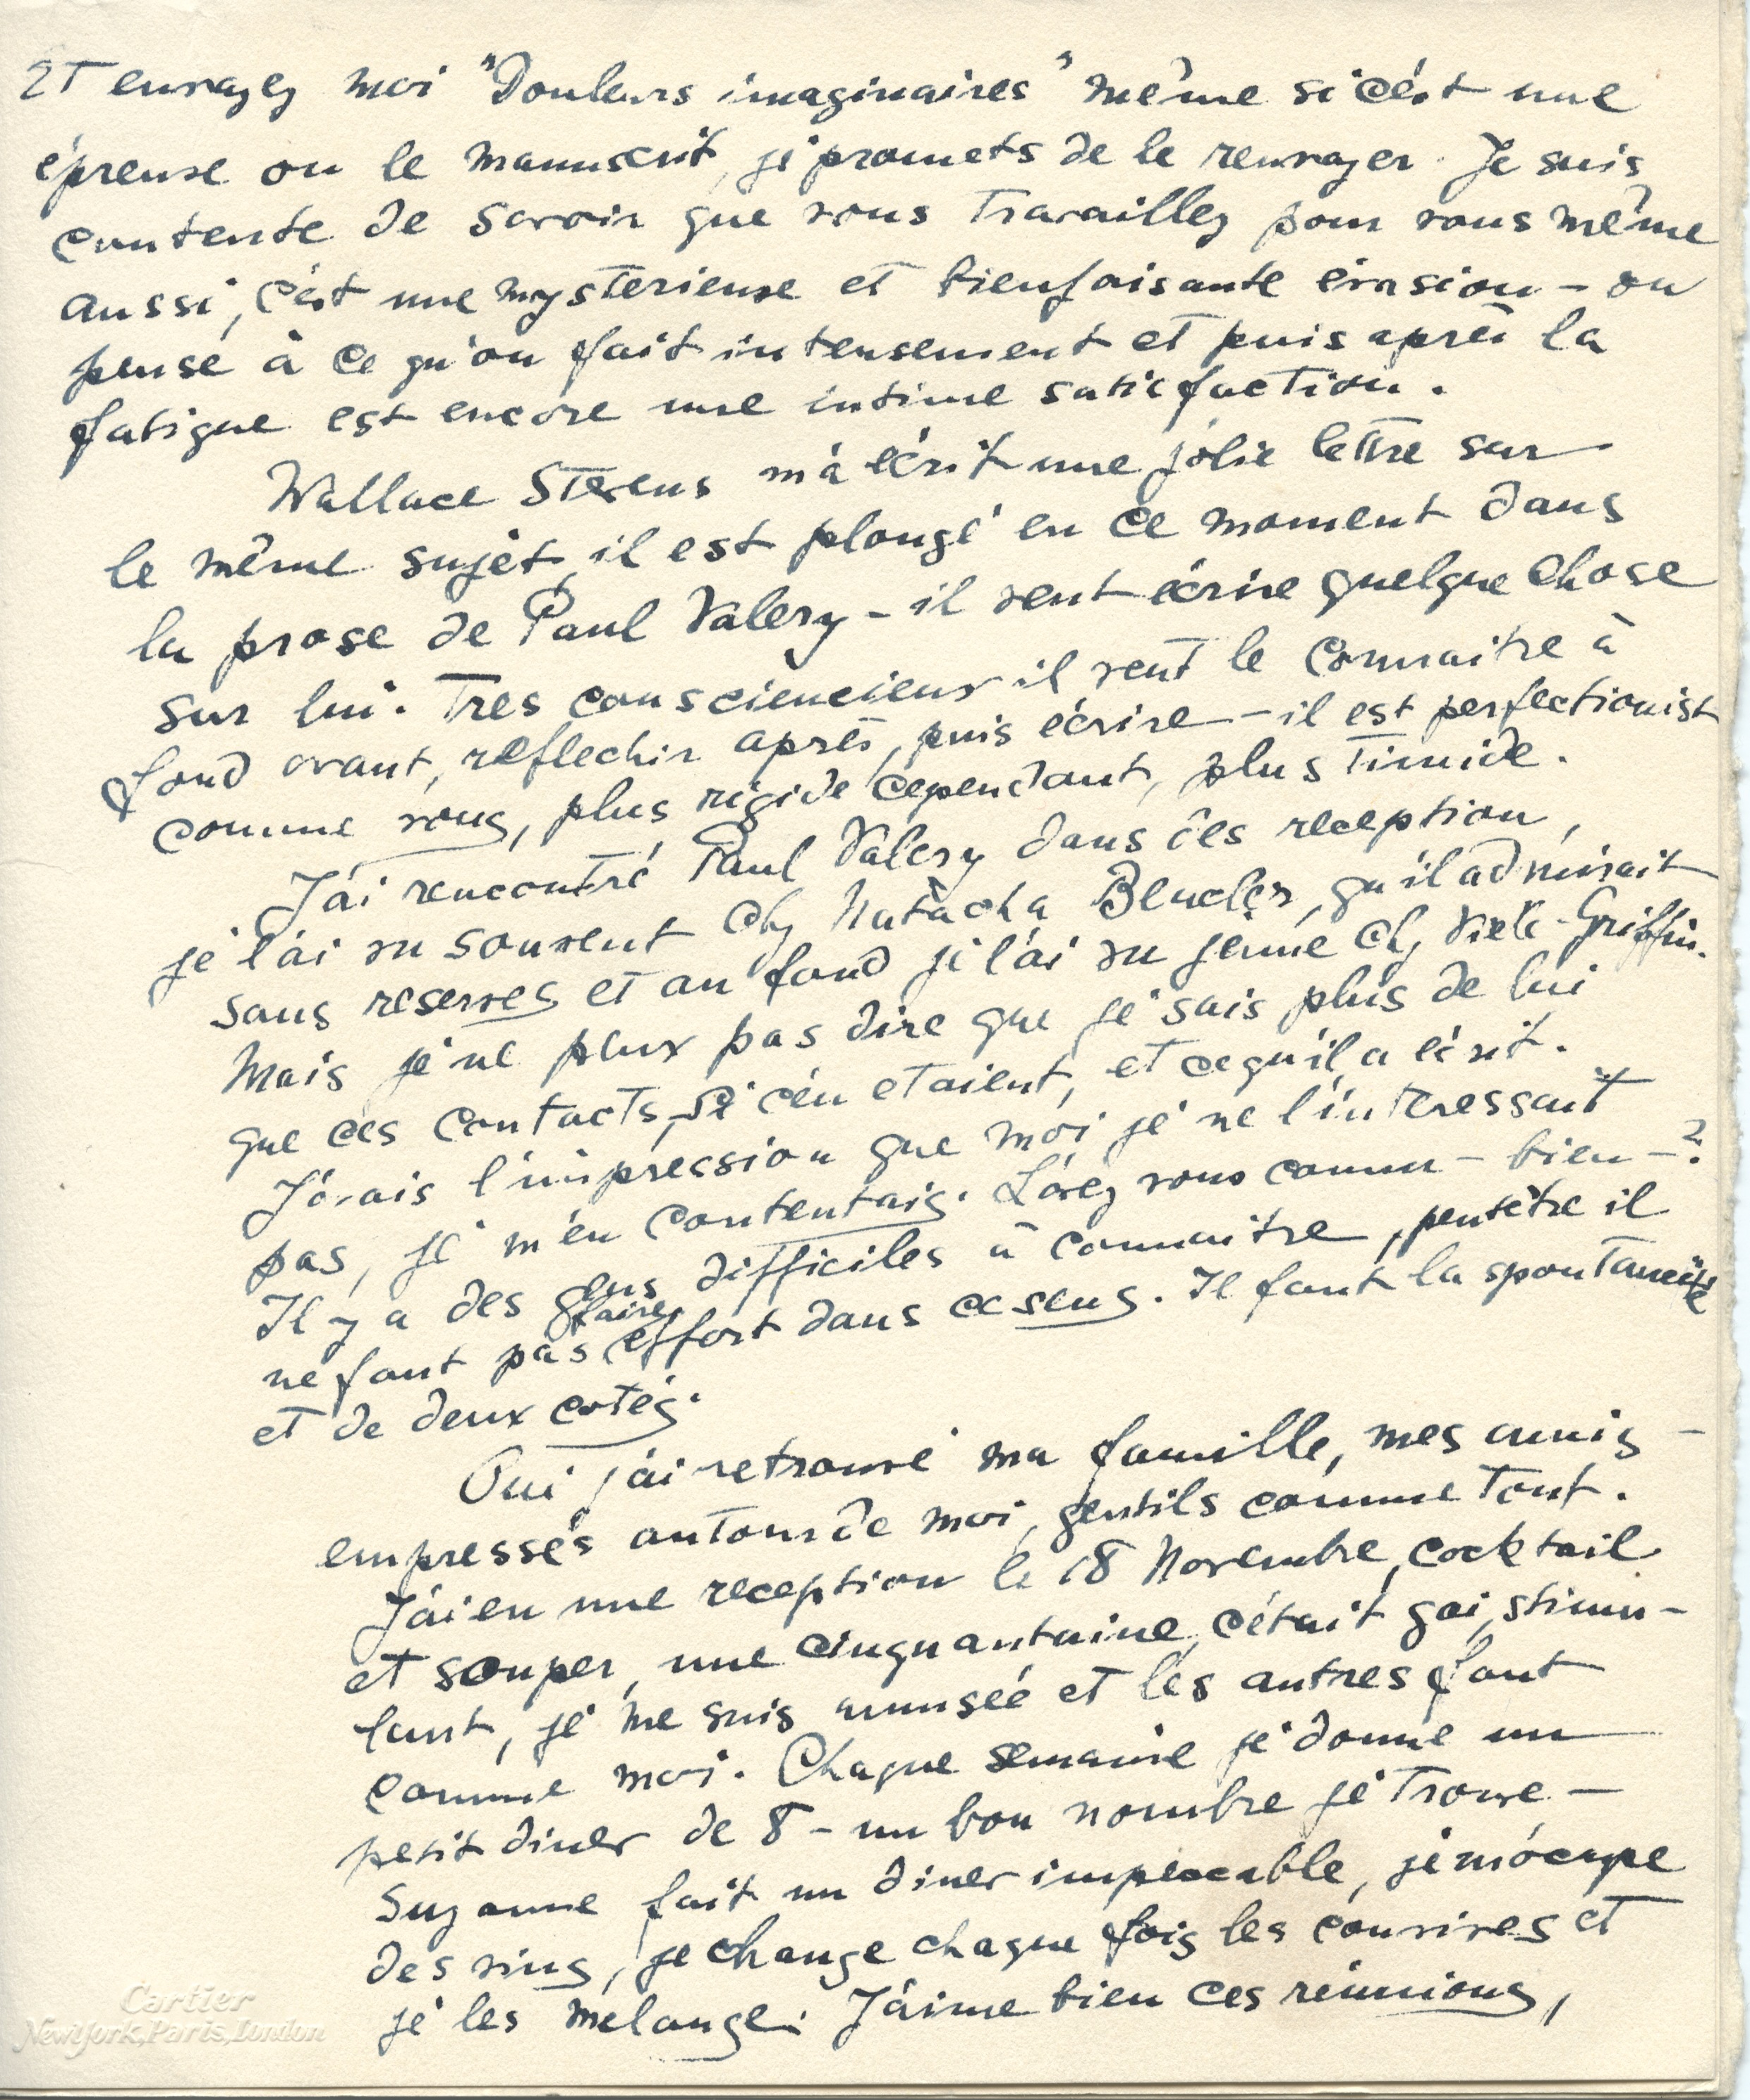 ET envoyez moi "Douleurs imaginaires" même si c'est une
épreuve ou le manuscrit, je promets de le renvoyer. Je suis
contente de savoir que vous travaillez pour vous même
aussi, c'est une mysterieuse et bienfaisante évasion - on
pense à ce qu'on fait intensement et puis après la
fatigue est encore une intime satisfaction.
Wallace Stevens m'a écrit une jolie lettre sur
le même sujet, il est plongé en ce moment dans
la prose de Paul Valery - il veut écrire quelque chose
sur lui. Tres consciencieux il veut le connaitre à
fond avant, reflechir après, puis écrire - il est perfectionist
comme vous, plus rigide cependant, plus timide.
J'ai rencontré Paul Valery dans des reception,
je l'ai vu souvent chez Natacha Beucler, qu'il admirait
sans reserves et au fond je l'ai vu jeune chez Vielé-Griffin.
Mais je ne peux pas dire que je sais plus de lui
que ces contacts, si c'en etaient, et ce qu'il a écrit.
J'avais l'impression que moi je ne l'interessait
pas, je m'en contentais. L'avez vous connu - bien - ?
Il y a des gens difficiles à connaitre, peutêtre il
ne faut pas faire effort dans ce sens. Il faut la spontaneité
et de deux cotés.
Oui j'ai retrouvé ma famille, mes amis -
empressés autour de moi, gentils comme tout.
J'ai eu une reception le 18 Novembre, cocktail
et souper, une cinquantaine, c'était gai, stimu-
lant, je me suis amusée et les autres font
comme moi. Chaque semaine je donne un
petit diner de 8 - un bon nombre je trouve -
Suzanne fait un diner impecable, je m'ócupe
des vins, je change chaque fois les convives et
je les mélange. J'aime bien ces réunions,
Cartier
New York, Paris, London